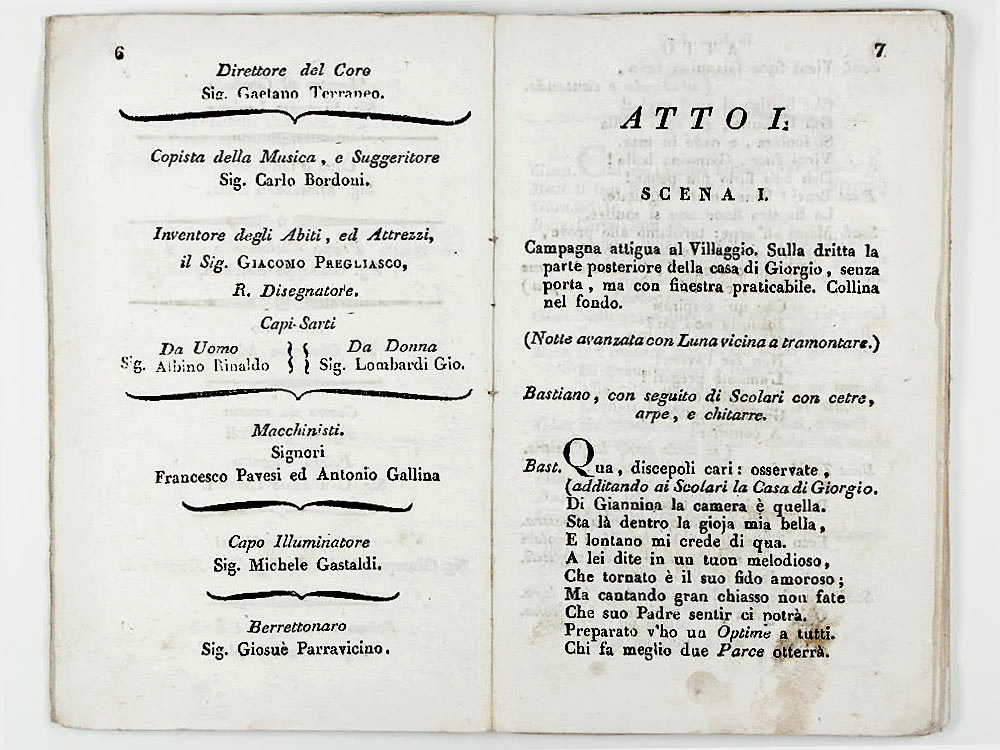 6
Direttore del Coro
Sig. Gaetano Terraneo.
Copista della Musica, e Suggeritore
Sig. Carlo Bordoni.
Inventore degli Abiti, ed Attrezzi,
il Sig. GIACOMO PREGLIASCO,
R. Disegnatore.
Capi-Sarti
Da Uomo
Sig. Albino Rinaldo
Da Donna
Sig. Lombardi Gio.
Macchinisti.
Signori
Francesco Pavesi ed Antonio Gallina
Capo Illuminatore
Sig. Michele Gastaldi.
Berrettonaro
Sig. Giosuè Parravicino.
7
ATTO I.
SCENA I.
Campagna attigua al Villaggio. Sulla dritta la
parte posteriore della casa di Giorgio, senza
porta, ma con finestra praticabile. Collina
nel fondo.
(Notte avanzata con Luna vicina a tramontare.)
Bastiano, con seguito di Scolari con cetre,
arpe, e chitarre.
Bast. Qua, discepoli cari: osservate,
(additando ai Scolari la Casa di Giorgio.
Di Giannina la camera è quella.
Sta là dentro la gioja mia bella,
E lontano mi crede di qua.
A lei dite in un tuon melodioso,
Che tornato è il suo fido amoroso;
Ma cantando gran chiasso non fate
Che suo Padre sentir ci potrà.
Preparato v'ho un Optime a tutti.
Chi fa meglio due Parce otterrà.